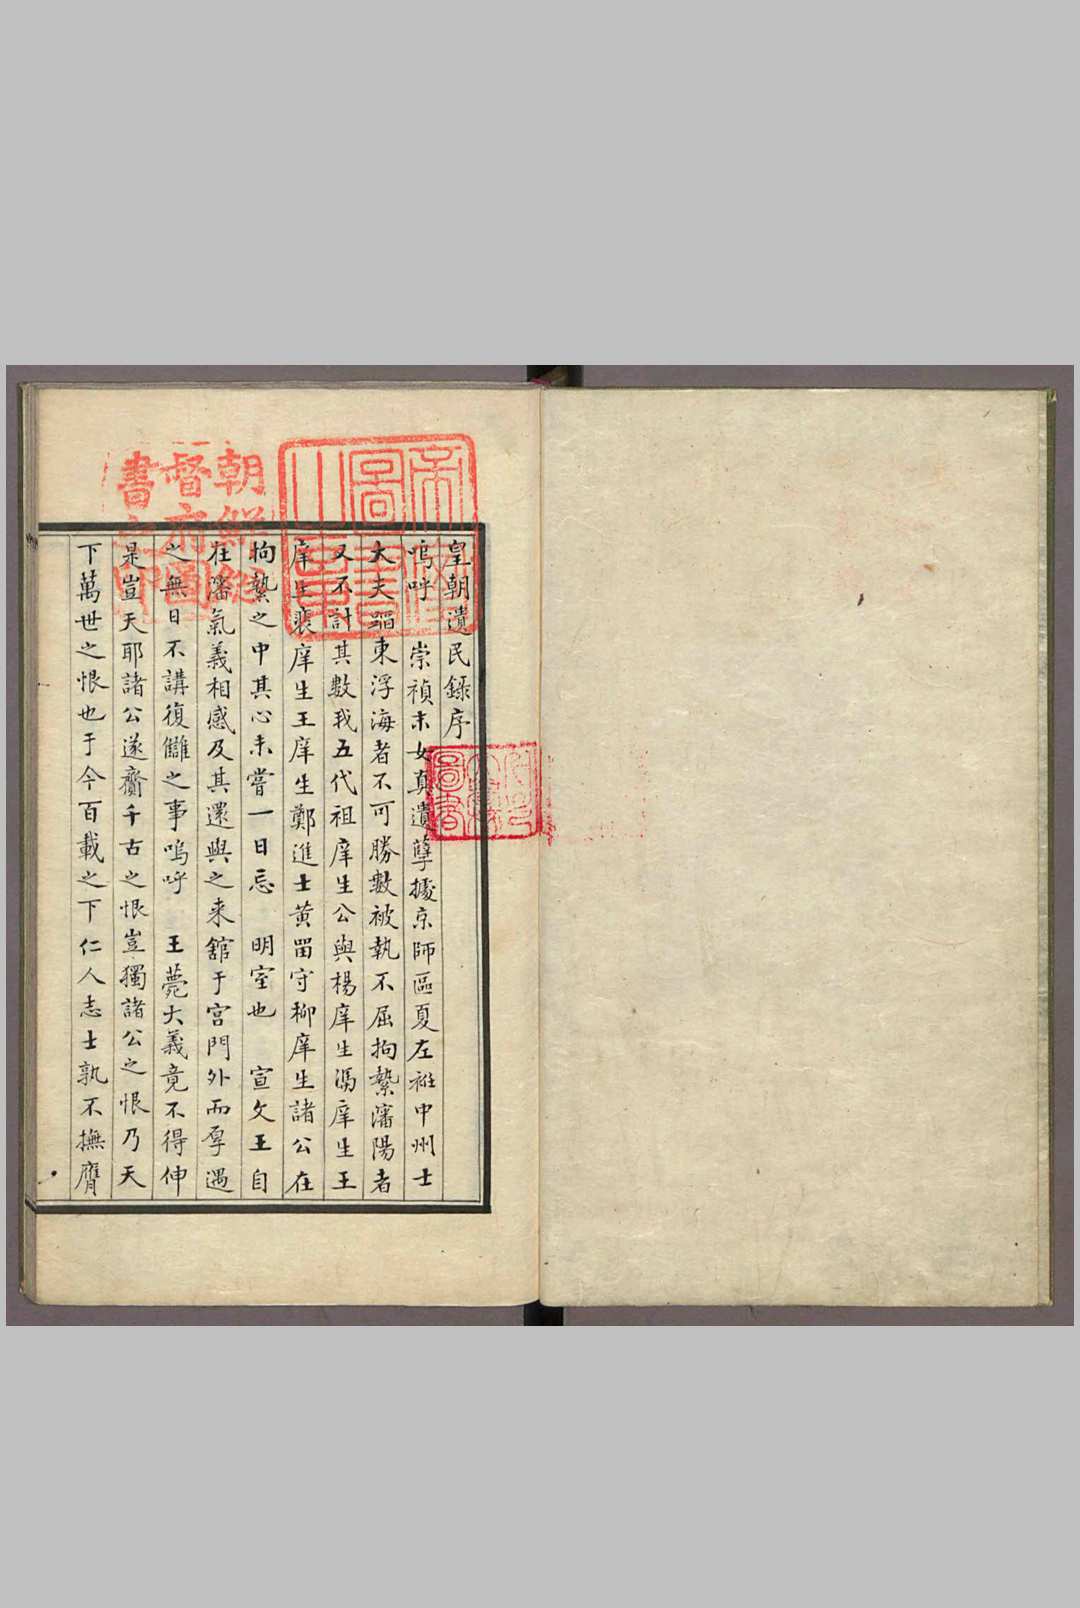 皇朝遺民錄序
嗚呼 崇禎末女真遺孼據京師區夏左袵中州士
大夫蹈東浮海者不可勝數被執不屈拘縶瀋陽者
又不計其數我五代祖庠生公與楊庠生馮庠生王
庠生裵庠生王庠生鄭進士黃畱守柳庠生諸公在
拘縶之中其心未嘗一日忘 明室也 宣文王自
在瀋氣義相感及其還與之来舘于宮門外而厚遇
之無日不講復讎之事嗚呼 王薨大義竟不得伸
是豈天耶諸公遂齎千古之恨豈獨諸公之恨乃天
下萬世之恨也于今百載之下仁人志士孰不撫膺
朝鮮總
督府圖
書之印
帝國
圖書
圖書